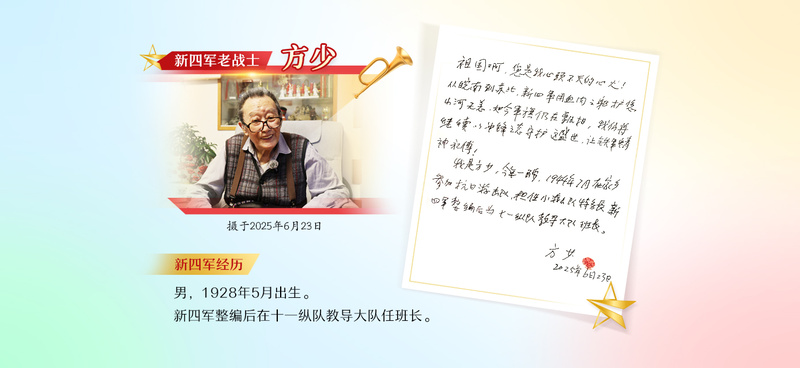 新四军老战士 方少
摄于2025年6月23日
新四军经历
男，1928年5月出生。
新四军整编后在十一纵队教导大队任班长。
祖国啊，您是我心头不灭的心火！
从皖南到苏北，新四军用血肉之躯护您
山河无恙，如今军旗仍在
继续以冲锋之姿守护这盛世，让铁军精
神永传！
我是方少，1944年7月在家乡
参加抗日游击队，担任小队队特务员，新
四军整编后为十一纵队教导大队班长。
方少
2025年6月23日